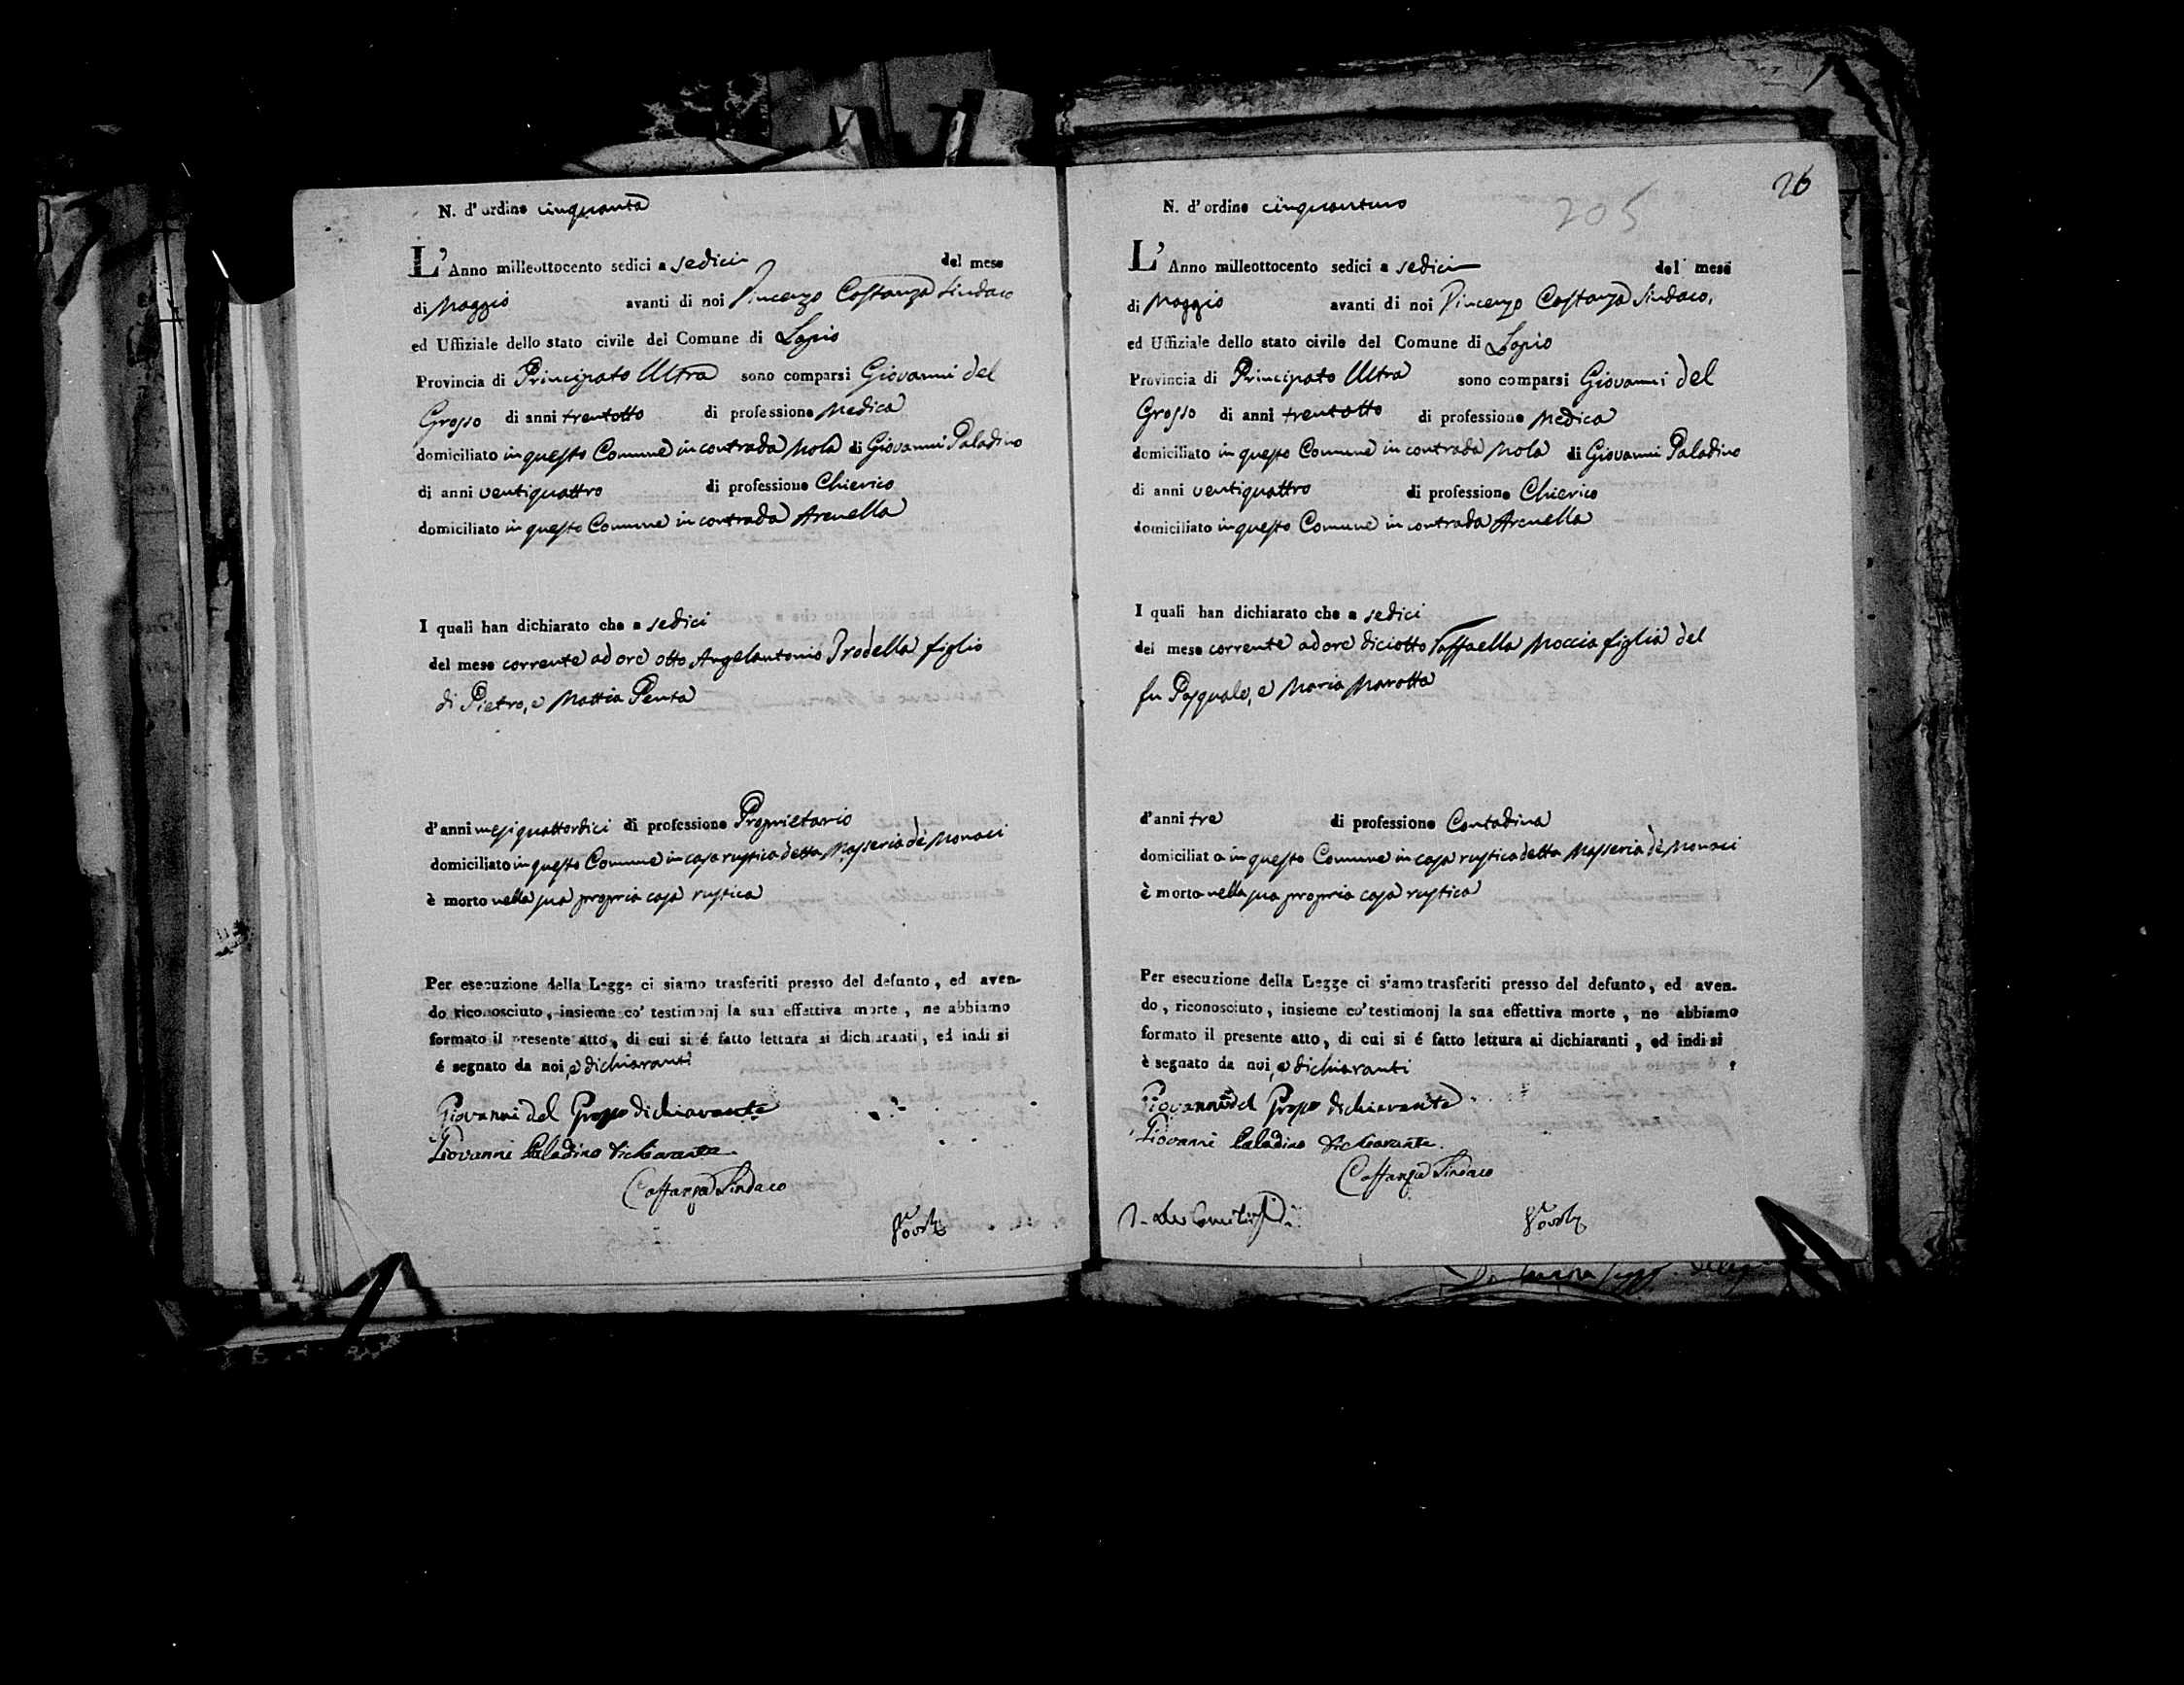 N. d'ordine cinquanta
L'Anno milleottocento sedici a sedici del mese
di Maggio avanti di noi Vincenzo Costanza Sindaco
ed Uffiziale dello stato civile del Comune di Lapio
Provincia di Principato Ultra sono comparsi Giovanni del
Grosso di anni trentotto di professione Medica
domiciliato in questo Comune in contrada Nola di Giovanni Paladino
di anni ventiquattro di professione Chierico
domiciliato in questo Comune in contrada Arenella
I quali han dichiarato che a sedici
del mese corrente ad ore otto Angelantonio Trodella figlio
di Pietro, e Mattia Penta
d'anni mesi quattordici di professione Proprietario
domiciliato in questo Comune in casa rustica detta Masseria de Monaci
è morto nella sua propria casa rustica
Per esecuzione della Legge ci siamo trasferiti presso del defunto, ed aven-
do riconosciuto, insieme co' testimonj la sua effettiva morte, ne abbiamo
formato il presente atto, di cui si é fatto lettura ai dichiaranti, ed indi si
é segnato da noi, e dichiaranti
Giovanni del Grosso dichiarante
Giovanni Paladino dichiarante
Costanza Sindaco
26
205
N. d'ordine cinquantuno
L'Anno milleottocento sedici a sedici del mese
di Maggio avanti di noi Vincenzo Costanza Sindaco,
ed Uffiziale dello stato civile del Comune di Lapio
Provincia di Principato Ultra sono comparsi Giovanni del
Grosso di anni trentotto di professione Medica
domiciliato in questo Comune in contrada Nola di Giovanni Paladino
di anni ventiquattro di professione Chierico
domiciliato in questo Comune in contrada Arenella
I quali han dichiarato che a sedici
del mese corrente ad ore diciotto Raffaella Moccia figlia del
fu Pasquale, e Maria Marotta
d'anni tre di professione Contadina
domiciliata in questo Comune in casa rustica detta Masseria de Monaci
è morto nella sua propria casa rustica
Per esecuzione della Legge ci siamo trasferiti presso del defunto, ed aven-
do, riconosciuto, insieme co' testimonj la sua effettiva morte, ne abbiamo
formato il presente atto, di cui si é fatto lettura ai dichiaranti, ed indi si
è segnato da noi, e dichiaranti
Giovanni del Grosso dichiarante
Giovanni Paladino dichiarante
Costanza Sindaco